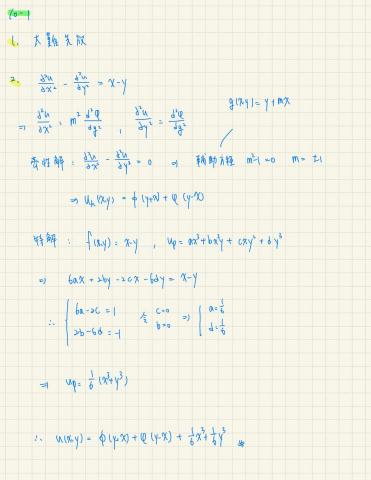 10-1
1. 太難先放
2. ∂²u/∂x² - ∂²u/∂y² = x-y
g(x,y) = y+mx
⇒ ∂²u/∂x² = m² d²φ/dg² , ∂²u/∂y² = d²φ/dg²
齊性解 : ∂²u/∂x² - ∂²u/∂y² = 0 ⇒ 輔助方程 m²-1=0 m = ±1
⇒ u_h(x,y) = φ(y+x) + φ(y-x)
特解 : f(x,y) = x-y , u_p = ax³+bx²y+cxy²+dy³
⇒ 6ax + 2by - 2cx - 6dy = x-y
∴ { 6a-2c = 1
2b-6d = -1
令 c=0
b=0
⇒ { a=1/6
d=1/6
⇒ u_p = 1/6 (x³+y³)
∴ u(x,y) = φ(y+x) + φ(y-x) + 1/6 x³ + 1/6 y³ #